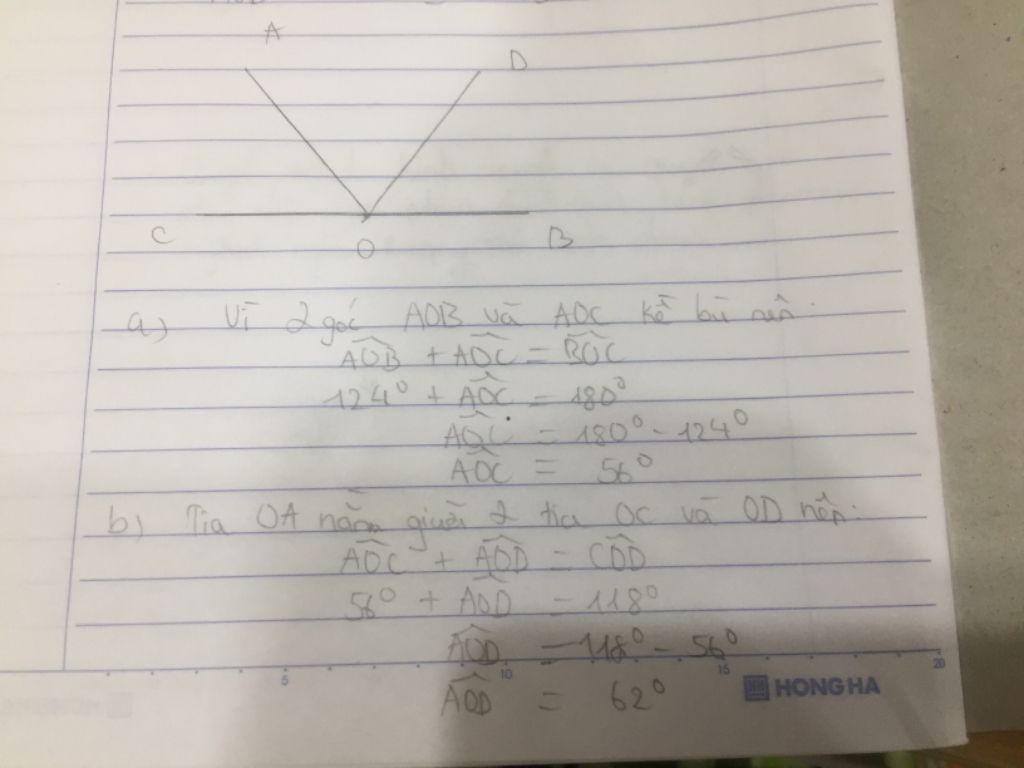 A
D
C
O
B
a) Vì 2 góc AOB và AOC kề bù nên:
AOB + AOC = BOC
124° + AOC = 180°
AOC = 180° - 124°
AOC = 56°
b) Tia OA nằm giữa 2 tia OC và OD nên:
AOC + AOD = COD
56° + AOD = 118°
AOD = 118° - 56°
AOD = 62°
5 10 15 20
HONG HA